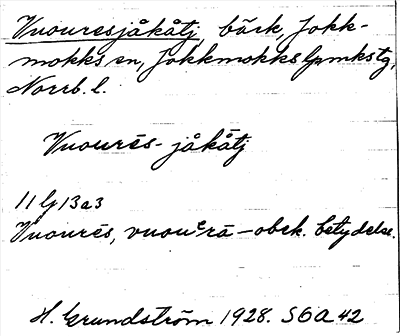 Vuouresjåkåtj, bäck, Jokk-
mokks sn, Jokkmokks lpmkstg,
Norrb. l.
Vuourēs- jåkåtj
11 lg 13 a 3
Vuourēs, vuouᵉrā – obek. betydelse.
H. Grundström 1928. S6a 42